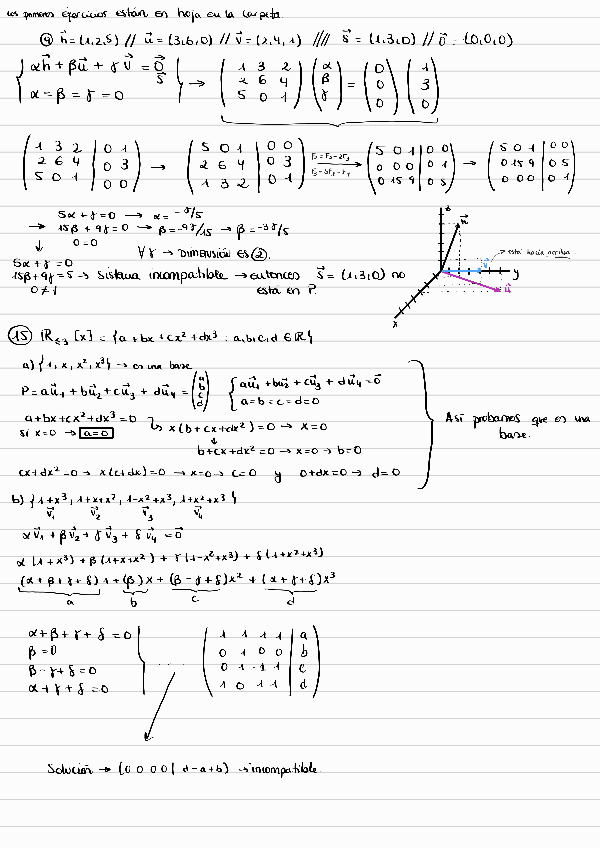 Los primeros ejercicios están en hoja en la carpeta.
④ h⃗ = (1,2,5) // u⃗ = (3,6,0) // v⃗ = (2,4,1) //// s⃗ = (1,3,0) // 0⃗ : (0,0,0)
{ αh⃗ + βu⃗ + γv⃗ = 0⃗ s⃗ } → ( 1 3 2 ) ( α ) = ( 0 ) ( 1 )
α = β = γ = 0 ( 2 6 4 ) ( β ) ( 0 ) ( 3 )
( 5 0 1 ) ( γ ) ( 0 ) ( 0 )
( 1 3 2 | 0 1 ) ( 5 0 1 | 0 0 ) F₂ = F₂ - 2F₃ ( 5 0 1 | 0 0 ) ( 5 0 1 | 0 0 )
( 2 6 4 | 0 3 ) → ( 2 6 4 | 0 3 ) → ( 0 0 0 | 0 1 ) → ( 0 15 9 | 0 5 )
( 5 0 1 | 0 0 ) ( 1 3 2 | 0 1 ) F₃ = 5F₃ - F₁ ( 0 15 9 | 0 5 ) ( 0 0 0 | 0 1 )
5α + γ = 0 → α = -γ/5
→ 15β + 9γ = 0 → β = -9γ/15 → β = -3γ/5
↓ 0 = 0 ∀γ → DIMENSIÓN ES ②.
5α + γ = 0
15β + 9γ = 5 → sistema incompatible → entonces s⃗ = (1,3,0) no
0 ≠ 1 está en P.
z
h⃗
v⃗ → está hacia arriba
y
u⃗
x
⑮ ℝ≤₃ [x] = {a + bx + cx² + dx³ : a,b,c,d ∈ ℝ}
a) {1, x, x², x³} → es una base
P = au⃗₁ + bu⃗₂ + cu⃗₃ + du⃗₄ = (a b c d) { au⃗₁ + bu⃗₂ + cu⃗₃ + du⃗₄ = 0⃗
a = b = c = d = 0
a + bx + cx² + dx³ = 0 ↳ x(b + cx + dx²) = 0 → x = 0
si x = 0 → a = 0
b + cx + dx² = 0 → x = 0 → b = 0
cx + dx² = 0 → x(c + dx) = 0 → x = 0 → c = 0 y 0 + dx = 0 → d = 0
Así probamos que es una
base.
b) {1+x³, 1+x+x², 1-x²+x³, 1+x²+x³}
v⃗₁ v⃗₂ v⃗₃ v⃗₄
αv⃗₁ + βv⃗₂ + γv⃗₃ + δv⃗₄ = 0⃗
α(1+x³) + β(1+x+x²) + γ(1-x²+x³) + δ(1+x²+x³)
(α+β+γ+δ)1 + (β)x + (β-γ+δ)x² + (α+γ+δ)x³
a b c d
α + β + γ + δ = 0 ( 1 1 1 1 | a )
β = 0 ( 0 1 0 0 | b )
β - γ + δ = 0 ..... ( 0 1 -1 1 | c )
α + γ + δ = 0 ( 1 0 1 1 | d )
Solución → (0 0 0 0 | d-a+b) → incompatible